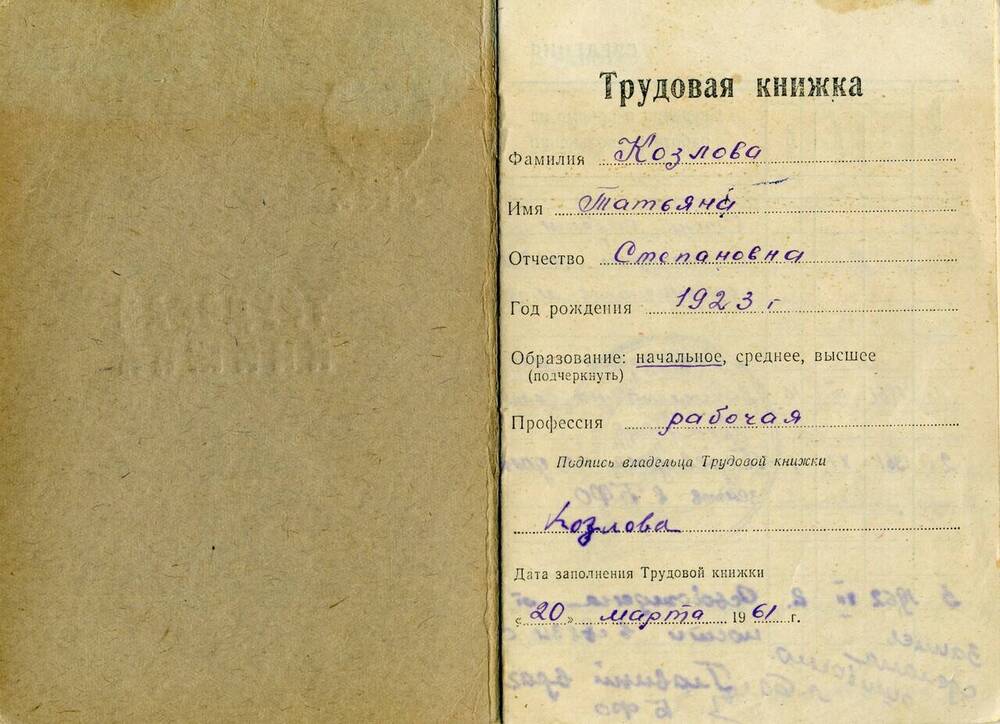 Трудовая книжка
Фамилия Козлова
Имя Татьяна
Отчество Степановна
Год рождения 1923 г
Образование: начальное, среднее, высшее
(подчеркнуть)
Профессия рабочая
Подпись владельца Трудовой книжки
Козлова
Дата заполнения Трудовой книжки
«20» марта 1961 г.